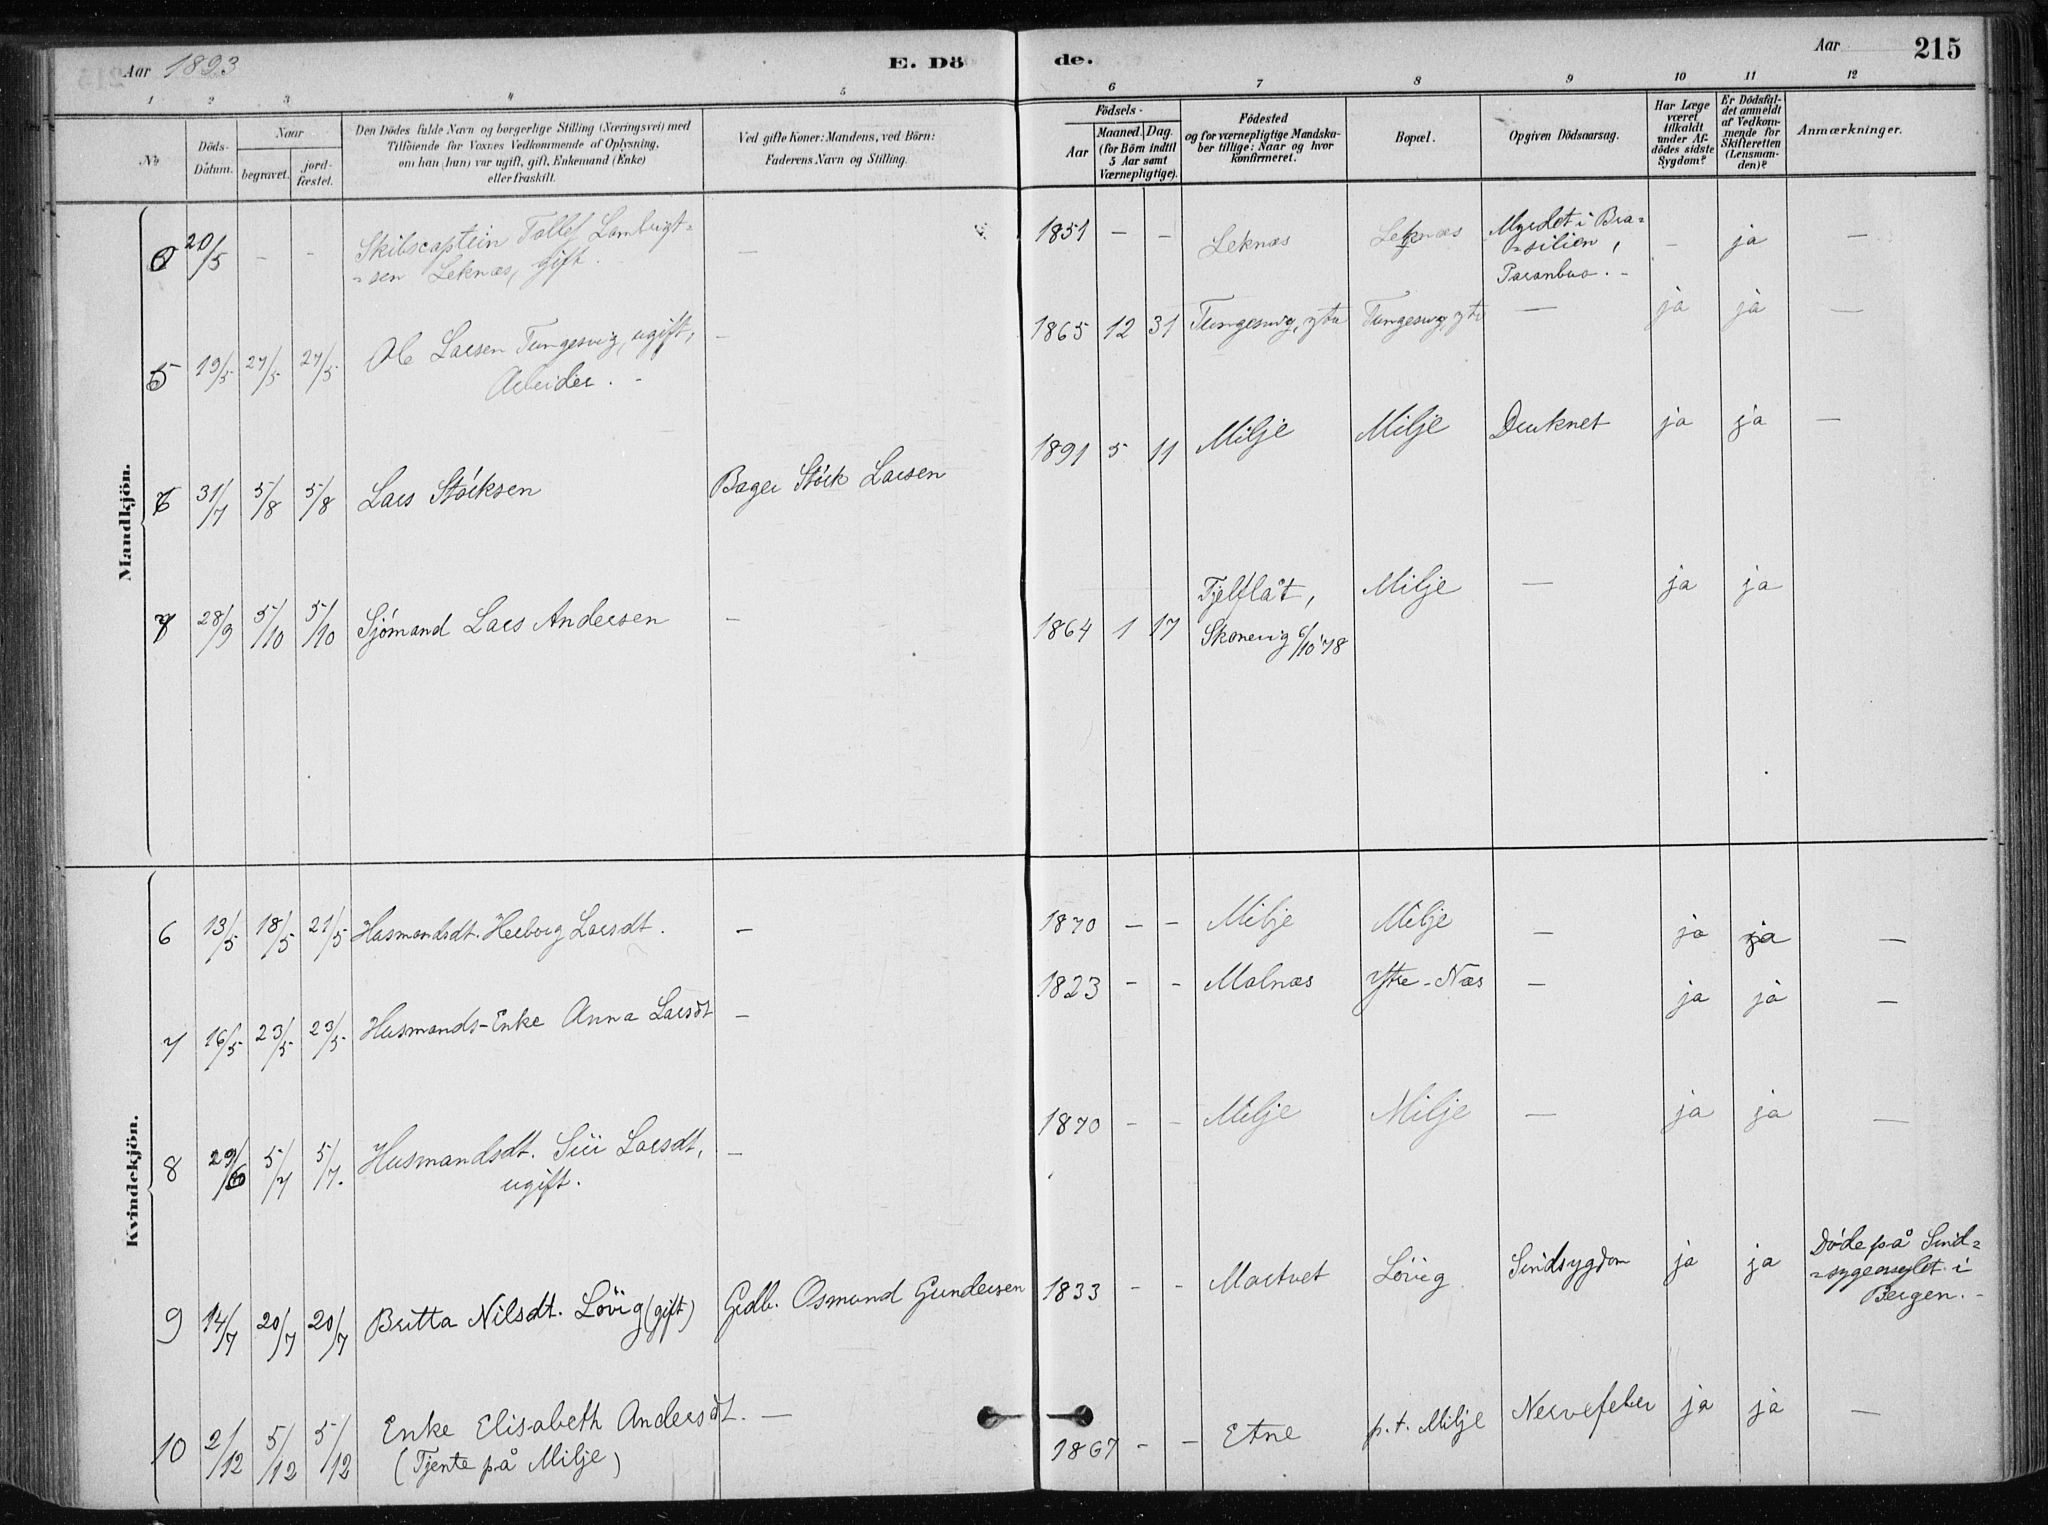 Aar 1893
E. Dö
de.
Aar
215
1 2 3 4 5 6 7 8 9 10 11 12
No
Döds-Dátum.
Naar
begravet.
jord-fæstet.
Den Dödes fulde Navn og borgerlige Stilling (Næringsvei) med
Tilföiende for Voxnes Vedkommende af Oplysning,
om han (hun) var ugift, gift, Enkemand (Enke)
eller fraskilt.
Ved gifte Koner: Mandens, ved Börn:
Faderens Navn og Stilling.
Födsels-
Aar
Maaned. Dag.
(for Börn indtil
5 Aar samt
Værnepligtige).
Födested
og for værnepligtige Mandska-
ber tillige: Naar og hvor
konfirmeret.
Bopæl.
Opgiven Dödsaarsag.
Har Læge
været
tilkaldt
under Af-
dödes sidste
Sygdom?
Er Dödsfal-
det anmeldt
af Vedkom-
mende for
Skifteretten
(Lensman-
den)?
Anmærkninger.
Mandkjön.
20/5 - - Skibscaptein Tollef Lambrigt=
=sen Leknæs, gift. - 1851 - - Leknæs Leknæs Myrdet i Bra=
=silien,
- ja -
5 19/5 27/5 27/5 Ole Larsen Tungesvig, ugift,
Arbeider. - 1865 12 31 Tungesvig, ytre Tungesvig, ytre - ja ja -
6 31/7 5/8 5/8 Lars Størksen Bager Størk Larsen 1891 5 11 Milje Milje Druknet ja ja -
7 28/9 5/10 5/10 Sjømand Lars Andersen - 1864 1 17 Fjelflåt,
Skonevig 6/10 78 Milje - ja ja
Kvindekjön.
6 13/5 18/5 21/5 Husmandsdt. Herborg Larsdt. - 1870 - - Milje Milje - ja ja -
7 16/5 23/5 23/5 Husmands-Enke Anna Larsdt - 1823 - - Malnæs Ytre-Næs - ja ja -
8 29/6 5/7 5/7. Husmandsdt. Siri Larsdt,
ugift. - 1870 - - Milje Milje - ja ja -
9 14/7 20/7 20/7 Britta Nilsdt. Løvig (gift) Grdb. Osmund Gundersen 1833 - - Martvet Løvig Sindsygdom ja ja Døde på Sind=
=sygeasylet i
Bergen.-
10 2/12 5/12 5/12 Enke Elisabeth Andersdt. - 1867 - - Etne p.t. Milje Nervefeber ja ja -
(Tjente på Milje)